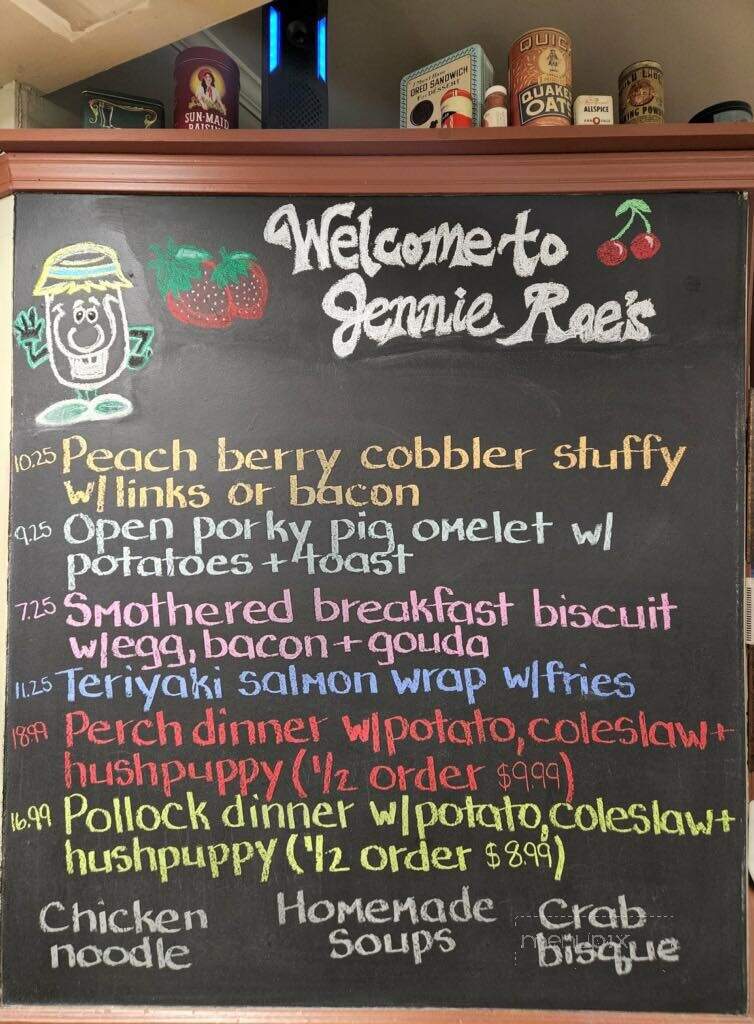 SUN-MAID
RAISINS
OREO SANDWICH
FOR DESSERT
QUICK
QUAKER
OATS
ALLSPICE
Welcome to
Jennie Rae's
10.25 Peach berry cobbler stuffy
w/links or bacon
9.25 Open porky pig omelet w/
potatoes + toast
7.25 Smothered breakfast biscuit
w/egg, bacon + gouda
11.25 Teriyaki salmon wrap w/fries
18.99 Perch dinner w/potato, coleslaw +
hushpuppy (1/2 order $9.99)
16.99 Pollock dinner w/potato, coleslaw +
hushpuppy (1/2 order $8.99)
Homemade
Soups
Chicken
noodle
Crab
bisque
menupix